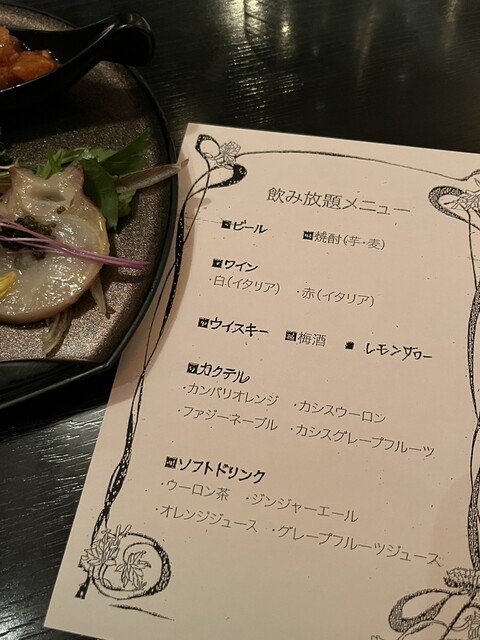 飲み放題メニュー
ビール 焼酎(芋・麦)
ワイン
・白(イタリア) ・赤(イタリア)
ウイスキー 梅酒 レモンサワー
カクテル
・カンパリオレンジ ・カシスウーロン
・ファジーネーブル ・カシスグレープフルーツ
ソフトドリンク
・ウーロン茶 ・ジンジャーエール
・オレンジジュース ・グレープフルーツジュース